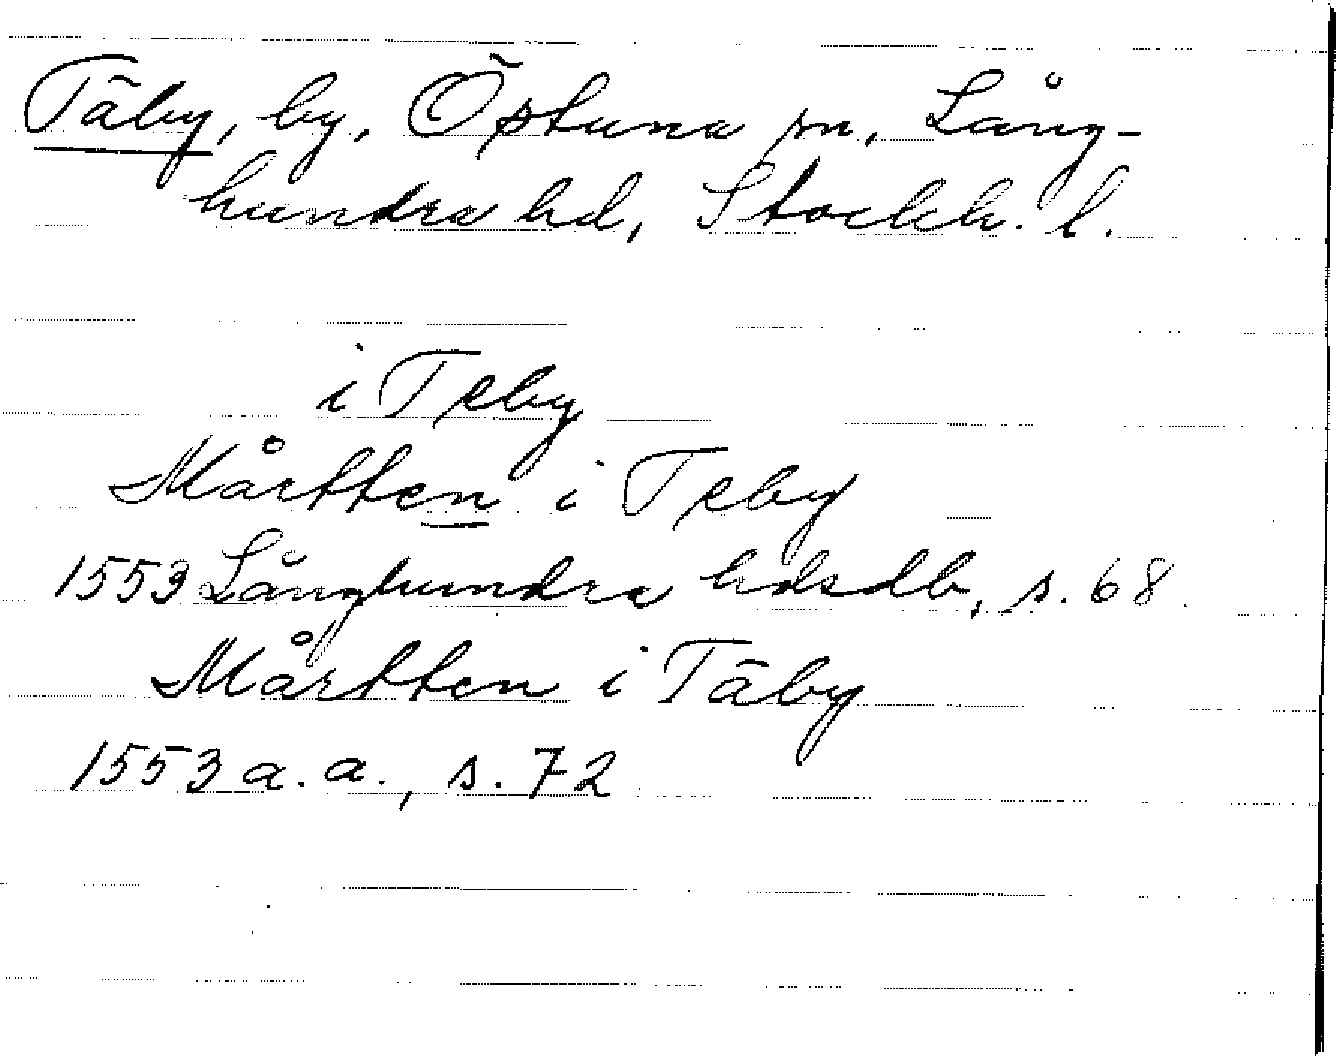 Täby, by, Östuna sn, Lång-
hundra hd, Stockh. l.
i Teby
Mårtten i Teby
1553 Långhundra hdsdb, s. 68.
Mårtten i Täby
1553 a. a., s. 72